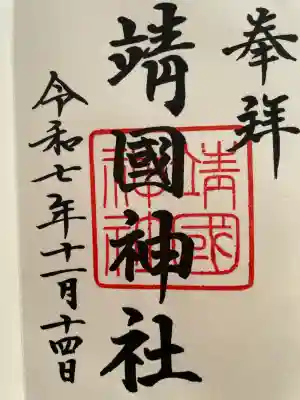 奉拝
靖國神社
靖國
神社
令和七年十一月十四日